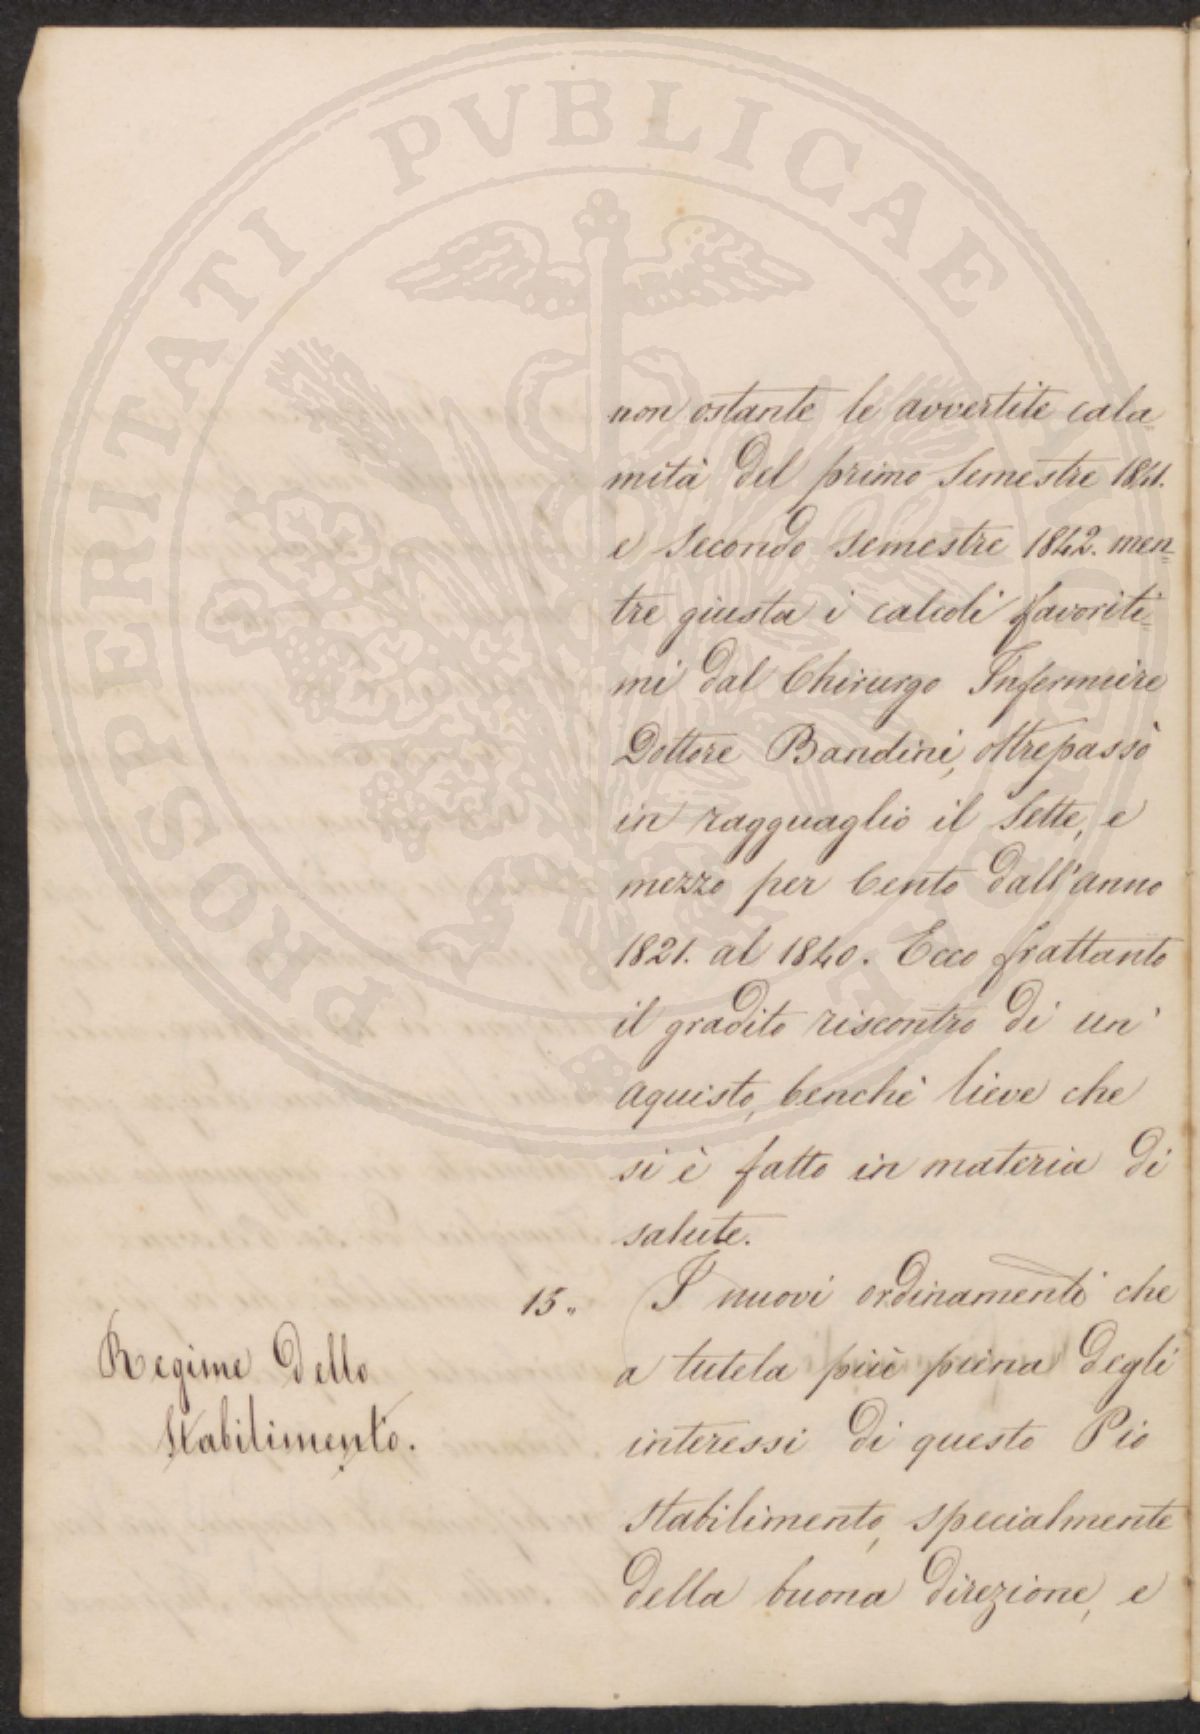 non ostante le avvertite cala=
mità del primo Semestre 1841.
e Secondo semestre 1842. men=
tre giusta i calcoli favoriti=
mi dal Chirurgo Infermiere
Dottore Bandini, oltrepassò
in ragguaglio il Sette, e
mezzo per Cento dall'anno
1821. al 1840. Ecco frattanto
il gradito riscontro di un'
aquisto, benchè lieve che
si è fatto in materia di
salute.
15.. I nuovi ordinamenti che
Regime dello
Stabilimento.
a tutela più piena degli
interessi di questo Pio
Stabilimento, specialmente
della buona direzione, e
PROSPERITATI PVBLICAE